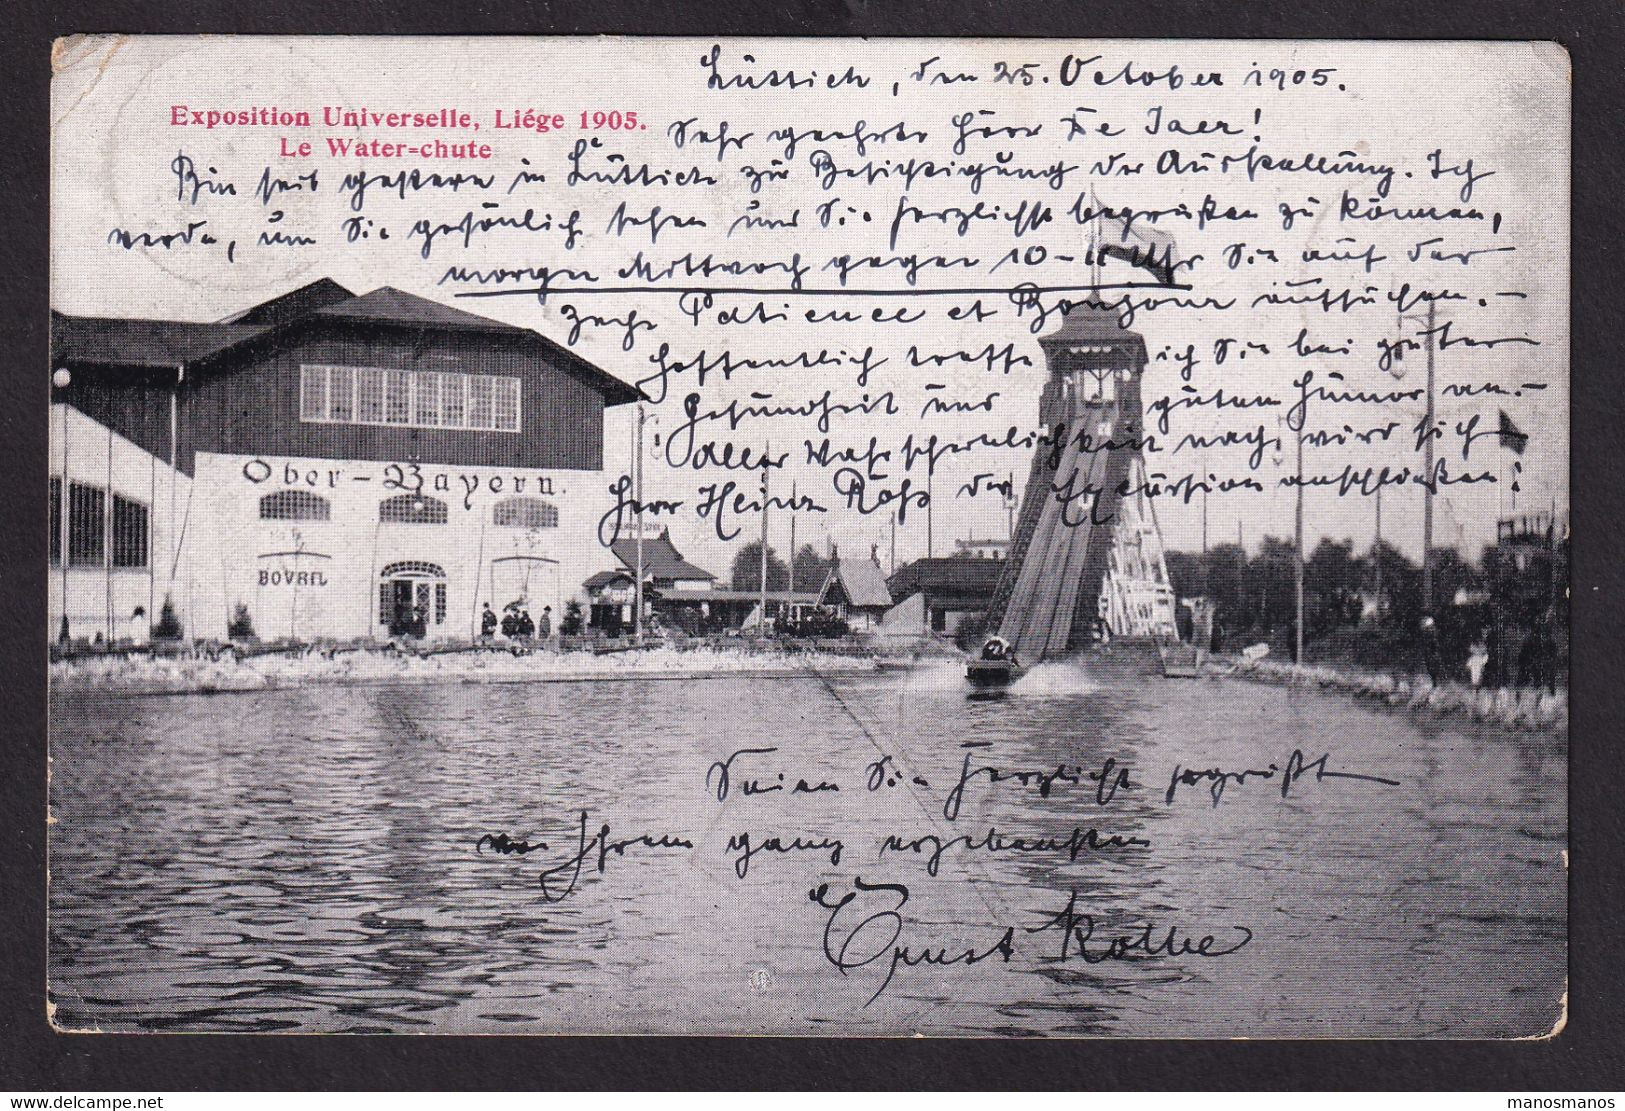 Lüttich, den 25. October 1905.
Exposition Universelle, Liége 1905.
Le Water=chute
Sehr geehrter Herr De Jaer!
Bin seit gestern in Lüttich zur Besichtigung der Ausstellung. Ich
werde, um Sie persönlich sehen und Sie herzlichst begrüßen zu können,
morgen Mittwoch gegen 10-11 Uhr Sie auf der
Zeche Patience et Bonjour aufsuchen. —
Hoffentlich treffe ich Sie bei guter
Gesundheit und guten Humor an. —
Aller Wahrscheinlichkeit nach wird sich
Herr Heinr. der Excursion anschließen!
Ober-Bayern.
BOVRIL
Seien Sie herzlichst gegrüßt
von Ihrem ganz ergebensten
Ernst
manosmanos
delcampe.net